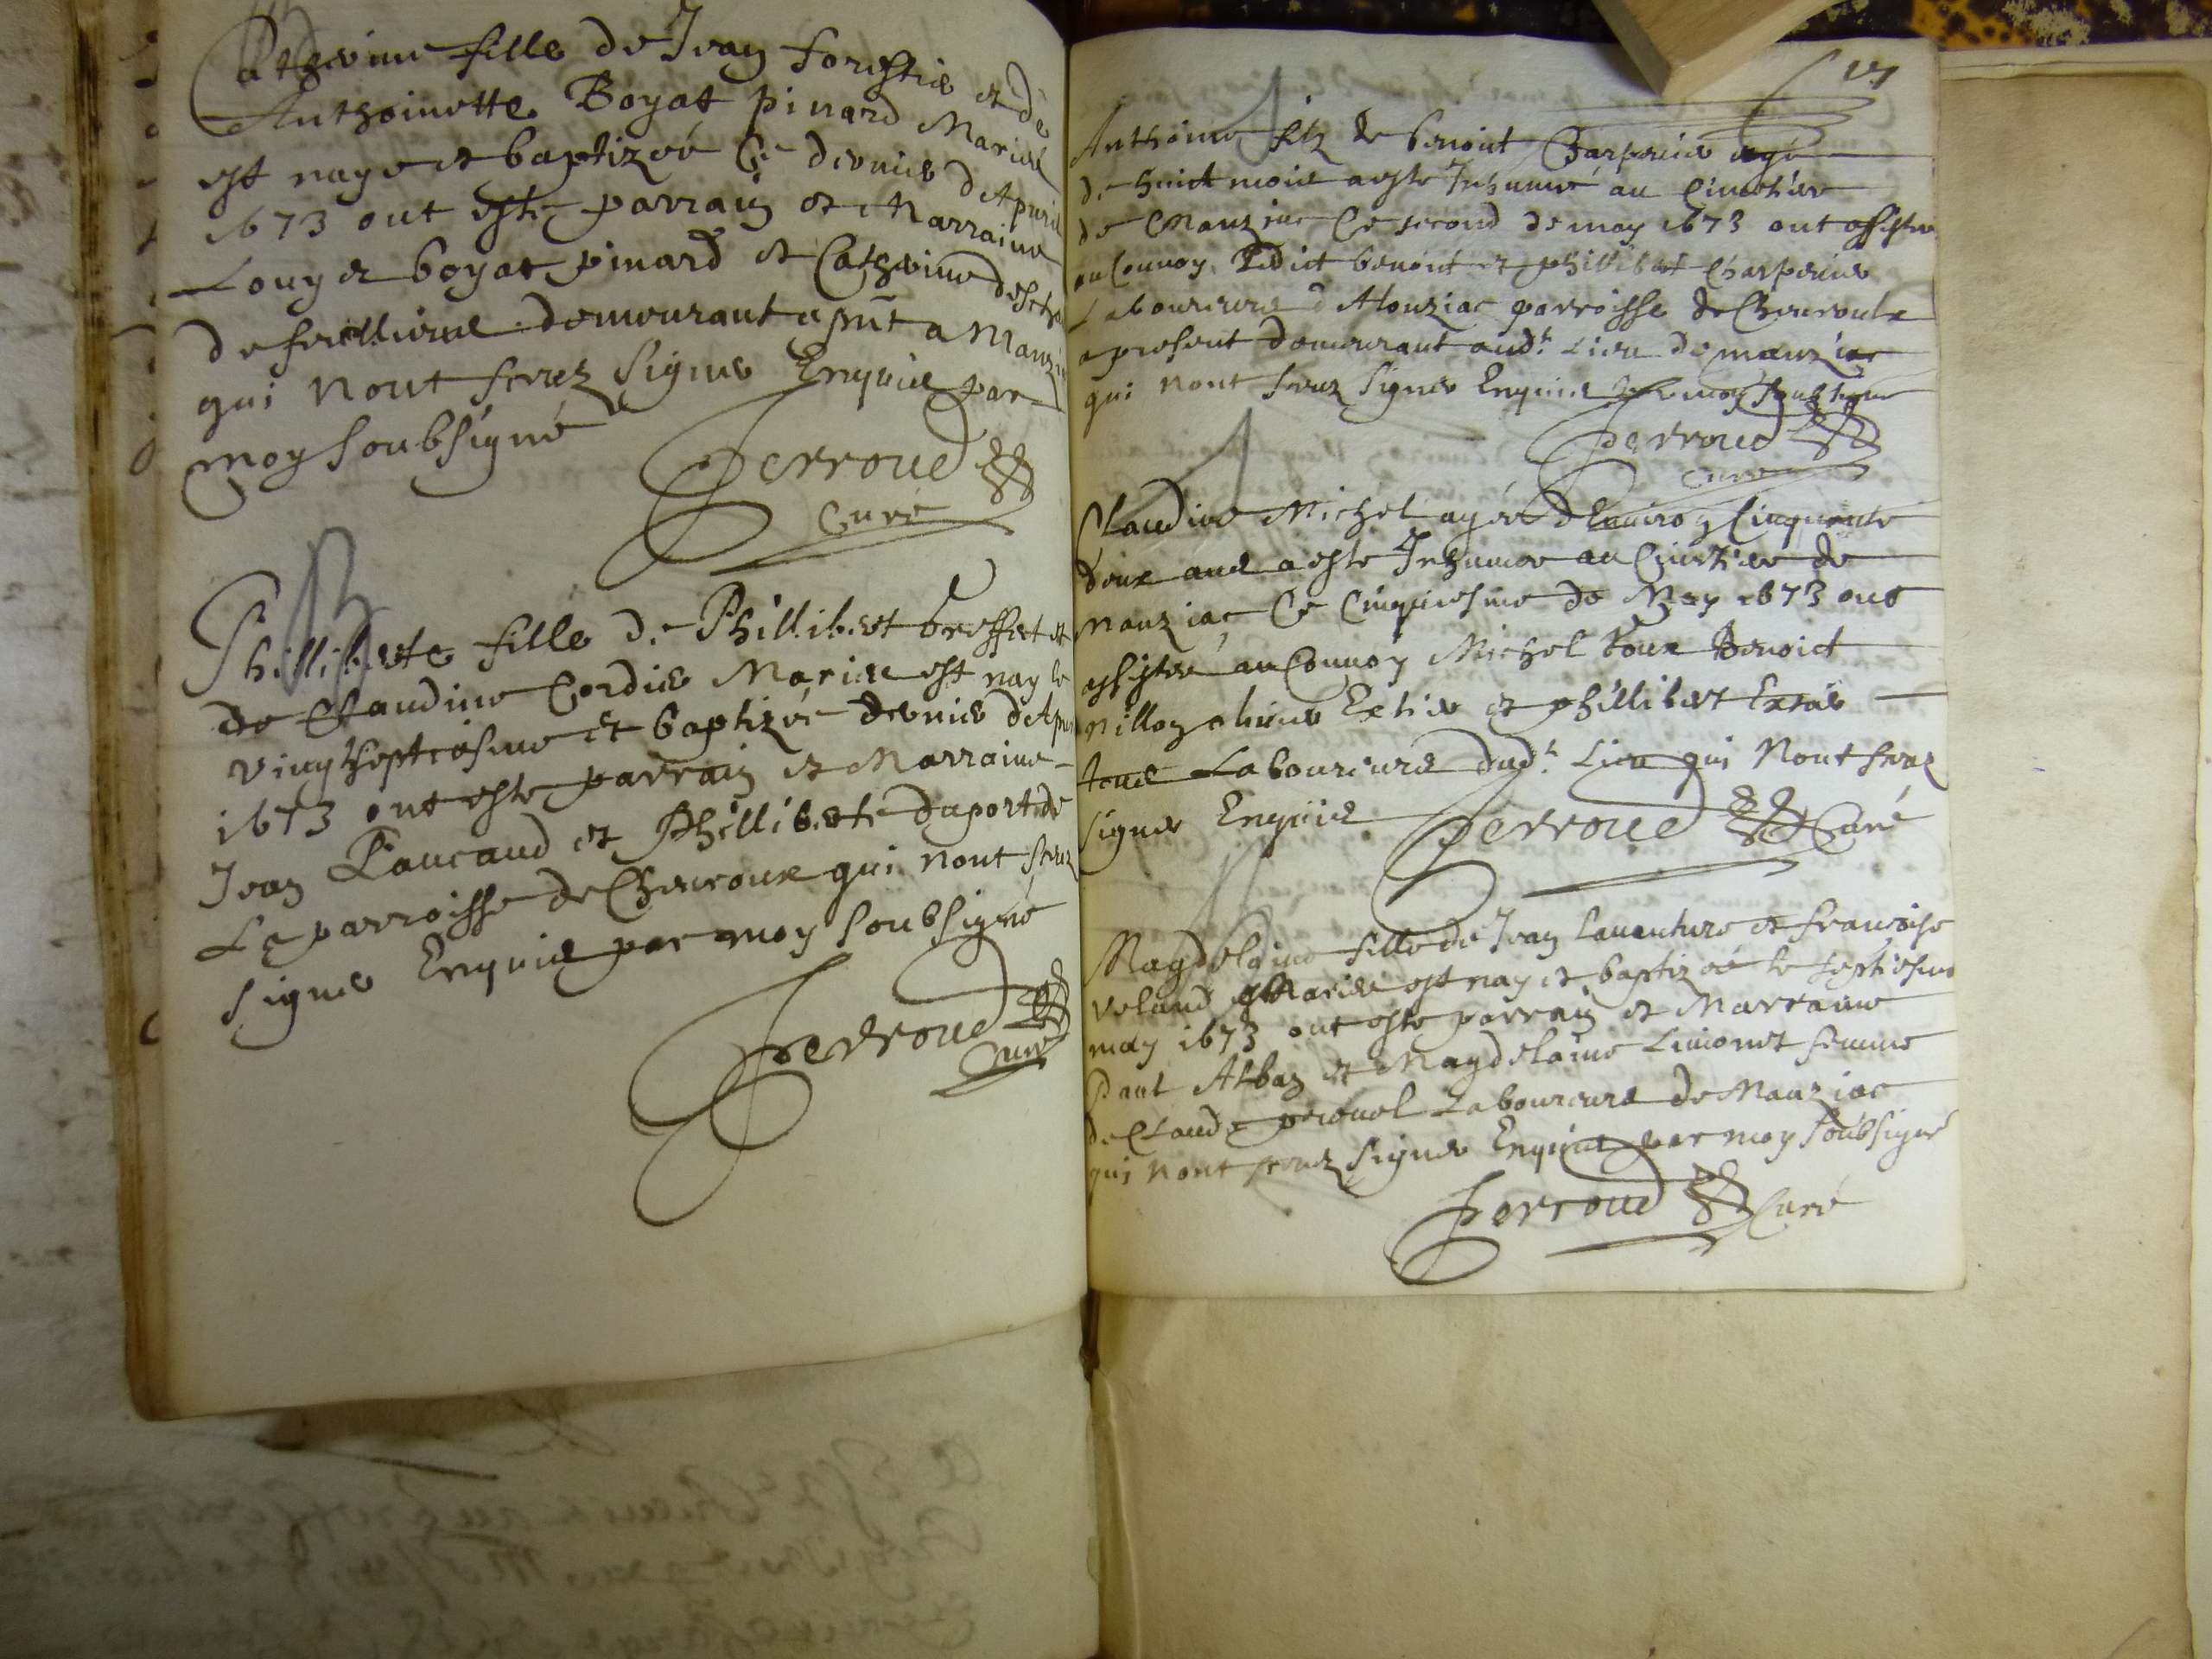 Catherine fille de Jean forestier et de
Anthoinette Boyat pinard Mariés
est naye et baptizeé Ce dernier d'Apuril
1673 ont esté parrain et Marraine
Louys boyat pinard et Catherine
de demeurant a pñt a Mauzia
qui n'ont sceuz signer Enquis par
moy soubsigné
Perroud
Curé
Philliberte fille de Phillibert breffat et
de Claudine Cordier Maries est nay le
vingtseptiesme et baptizée dernier d'Apu
1673 ont este parrain et Marraine
Jean Paucaud et Philliberte duport de
La parroisse de Cheuroux qui n'ont sceuz
signer Enquis par moy soubsigné
Perroud
Curé
17
Anthoine filz de benoit Charperier agé
de huict mois a este Inhumé au Cimetiere
de Mauziac Ce second de may 1673 ont assisté
au Conuoy Ledict benoit et phillibert Charperier
Laboureurs parroisse de Cheuroulx
a present demeurant aud.t Lieu de mauziac
qui n'ont sceuz signer Enquis par moy soubsigné
Perroud
Curé
Claudine Michel agée d'Enuiron Cinquante
deux ans a este Inhumee au Cimetiere de
Mauziac Ce Cinquiesme de May 1673 ont
assisté au Conuoy Michel Roux Benoict
et phillibert
tous Laboureurs dud.t Lieu qui N'ont sceuz
signer Enquis
Perroud Curé
Magdelaine fille de Jean Lauanture et francoise
Veland Maries est nay et baptizeé le septiesme
may 1673 ont este parrain et Marraine
Paul Alban et Magdelaine Limonet femme
de Claude Laboureurs de Mauziac
qui n'ont sceuz signer Enquis par moy soubsigné
Perroud Curé